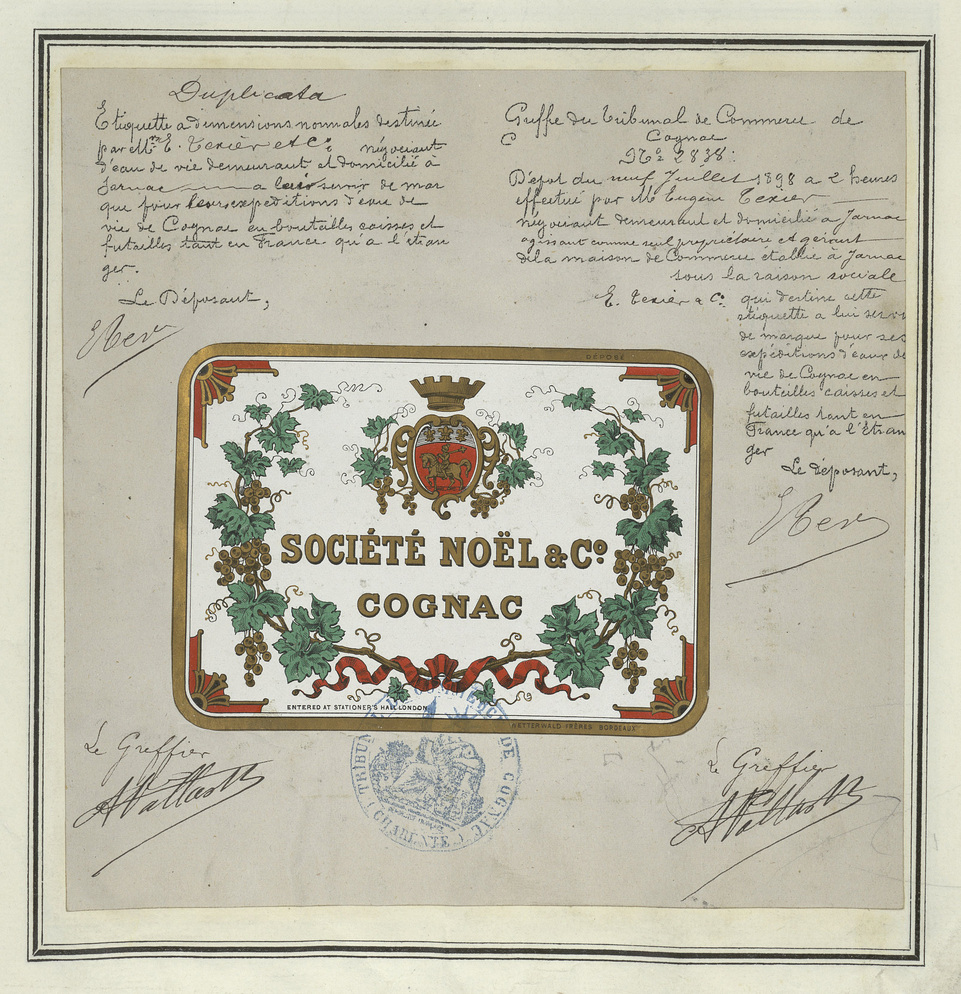 Duplicata
Etiquette a dimensions normales destinée
par Mr E. Texier et Co négociant
d'eau de vie demeurant et domicilié à
Jarnac a leur servir de mar
que pour leurs expéditions d'eau de
vie de Cognac en bouteilles caisses et
futailles tant en France qu'a l'étran
ger.
Le Déposant,
Greffe du Tribunal de Commerce de
C
Cognac
No 2838.
Dépot du neuf Juillet 1898 a 2 heures
effectué par Mr Eugène Texier
négociant demeurant et domicilié a Jarnac
agissant comme seul propriétaire et gérant
de la maison de Commerce établie à Jarnac
sous la raison sociale
E. Texier & Co. qui destine cette
étiquette a lui servir
de marque pour ses
expéditions d'eaux de
vie de Cognac en
bouteilles caisses et
futailles tant en
France qu'a l'étran
ger
Le déposant,
DÉPOSÉ
SOCIÉTÉ NOËL & Co
COGNAC
ENTERED AT STATIONER'S HALL LONDON
WETTERWALD FRÈRES BORDEAUX
TRIBUNAL DE COMMERCE DE COGNAC
(CHARENTE)
Le Greffier
Le Greffier